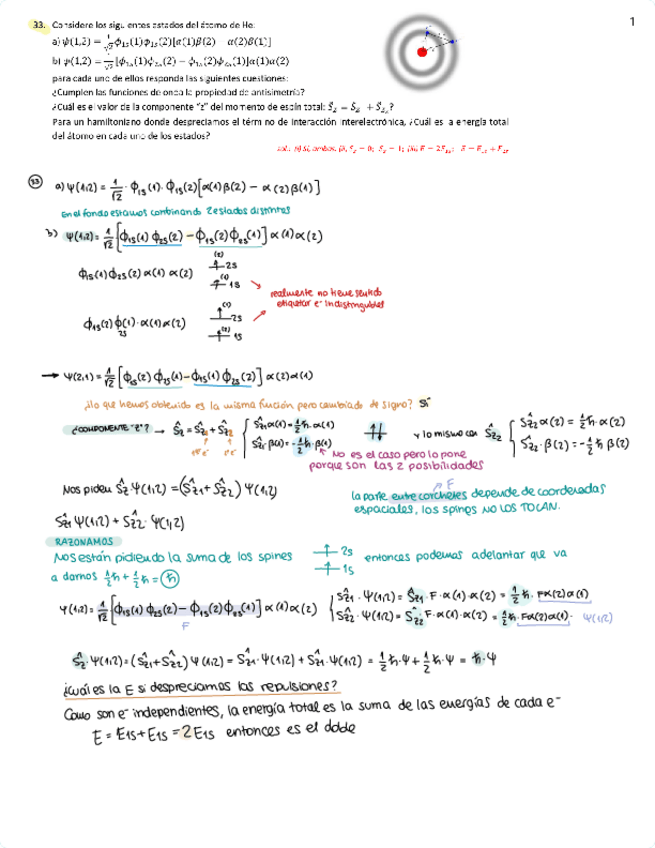 1
33. Considere los siguientes estados del átomo de He:
a) ψ(1,2) = 1/√2 ϕ₁ₛ(1)ϕ₁ₛ(2)[α(1)β(2) − α(2)β(1)]
b) ψ(1,2) = 1/√2 [ϕ₁ₛ(1)ϕ₂ₛ(2) − ϕ₁ₛ(2)ϕ₂ₛ(1)]α(1)α(2)
para cada uno de ellos responda las siguientes cuestiones:
¿Cumplen las funciones de onda la propiedad de antisimetría?
¿Cuál es el valor de la componente "z" del momento de espín total:
Para un hamiltoniano donde despreciamos el término de interacción interelectrónica, ¿Cuál es la energía total
del átomo en cada uno de los estados?
33 a) Ψ(1,2) = 1/√2 · ϕ1s(1) · ϕ1s(2) [α(1)β(2) − α(2)β(1)]
En el fondo estamos combinando 2 estados distintos
b) Ψ(1,2) = 1/√2 [ϕ1s(1) ϕ2s(2) − ϕ1s(2) ϕ2s(1)] α(1) α(2)
ϕ1s(1) ϕ2s(2) α(1) α(2)
(2) 2s
(1) 1s
realmente no tiene sentido
etiquetar e⁻ indistinguibles
ϕ1s(2) ϕ2s(1) · α(1) α(2)
(1) 2s
(2) 1s
→ Ψ(2,1) = 1/√2 [ϕ1s(2) ϕ2s(1) − ϕ1s(1) ϕ2s(2)] α(2) α(1)
¿lo que hemos obtenido es la misma función pero cambiado de signo? Sí
¿COMPONENTE "Z"? → Ŝz = Ŝz1 + Ŝz2 { Ŝz1 α(1) = 1/2 ħ · α(1)
Ŝz1 · β(1) = −1/2 ħ · β(1)
y lo mismo con Ŝz2 { Ŝz2 α(2) = 1/2 ħ · α(2)
Ŝz2 · β(2) = −1/2 ħ β(2)
No es el caso pero lo pone
porque son las 2 posibilidades
Nos piden Ŝz Ψ(1,2) = (Ŝz1 + Ŝz2) Ψ(1,2)
F
la parte entre corchetes depende de coordenadas
espaciales, los spines NO LOS TOCAN.
Ŝz1 Ψ(1,2) + Ŝz2 · Ψ(1,2)
RAZONAMOS
Nos están pidiendo la suma de los spines
2s
1s
entonces podemos adelantar que va
a darnos 1/2 ħ + 1/2 ħ = ħ
Ψ(1,2) = 1/√2 [ϕ1s(1) ϕ2s(2) − ϕ1s(2) ϕ2s(1)] α(1) α(2)
F
{ Ŝz1 · Ψ(1,2) = Ŝz1 · F · α(1) · α(2) = 1/2 ħ · Fα(2)α(1)
Ŝz2 · Ψ(1,2) = Ŝz2 F · α(1) · α(2) = 1/2 ħ · Fα(2)α(1) · Ψ(1,2)
Ŝz · Ψ(1,2) = (Ŝz1 + Ŝz2) Ψ(1,2) = Ŝz1 · Ψ(1,2) + Ŝz1 · Ψ(1,2) = 1/2 ħ · Ψ + 1/2 ħ · Ψ = ħ · Ψ
¿Cuál es la E si despreciamos las repulsiones?
Como son e⁻ independientes, la energía total es la suma de las energías de cada e⁻
E = E1s + E1s = 2E1s entonces es el doble